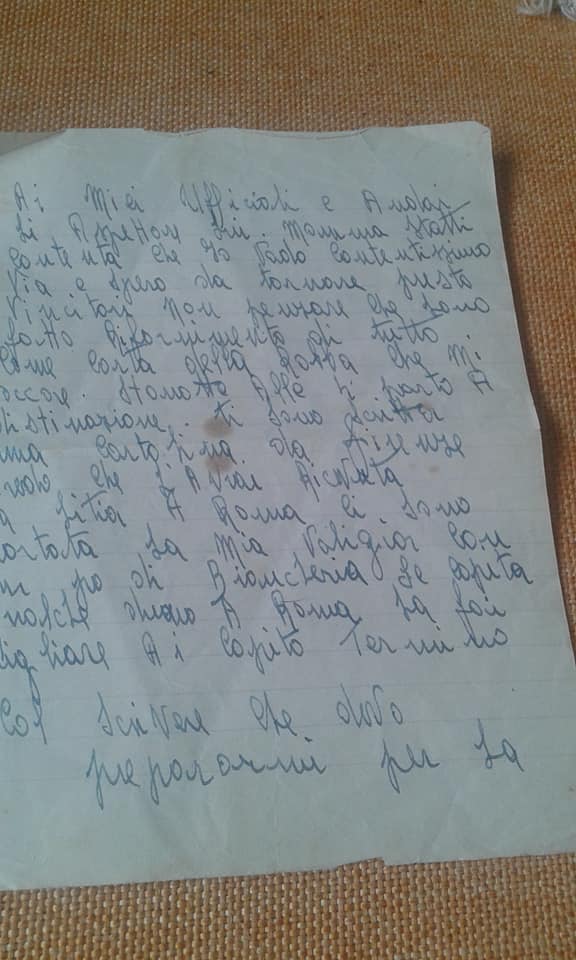 Ai Miei Ufficiali e Andai
Li Mamma statti
Contenta che Io Vado Contentissimo
Via e spero da tornare presto
Vincitori Non penzare che sono
fatto Rifornimento di tutto
Come Carta della Robba che Mi
occore. Stanotte Alle si parto A
distinazione. ti sono scritto
una Cartolina da Firenze
credo che l'Avrai Ricevuta
la A Roma Ci sono
portata La Mia Valigia Con
un po di Biancheria Se Capita
qualche A Roma La fai
pigliare Ai Capito Termino
Col Scrivere che devo
prepararmi per La